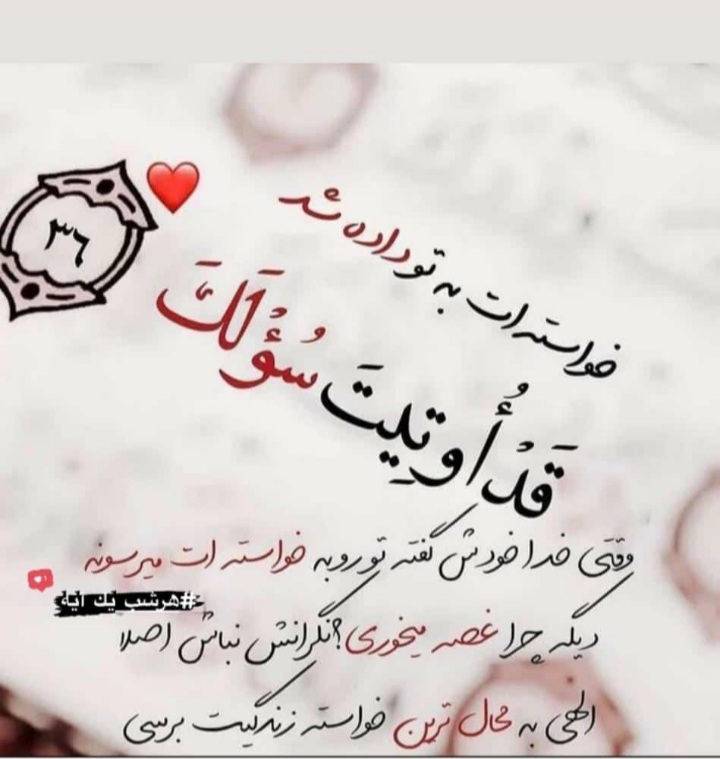 خواسته ات به تو داده شد
۳٦
قَدْ أُوتِيتَ سُؤْلَكَ
وقتی خدا خودش گفته تو رو به خواسته ات میرسونه
#هرشب یك آیة
دیگه چرا غصه میخوری؟نگرانش نباش اصلا
الهی به محال ترین خواسته زندگیت برسی